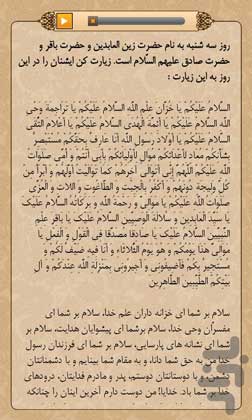 روز سه شنبه به نام حضرت زین العابدین و حضرت باقر و
حضرت صادق علیهم السّلام است. زیارت کن ایشان را در این
روز به این زیارت :
السَّلامُ عَلَيْكُمْ يا خُزّانَ عِلْمِ اللّهِ السَّلامُ عَلَيْكُمْ يا تَراجِمَةَ وَحْىِ
اللّهِ السَّلامُ عَلَيْكُمْ يا اَئِمَّةَ الْهُدى السَّلامُ عَلَيْكُمْ يا اَعْلامَ التُّقى
السَّلامُ عَلَيْكُمْ يا اَوْلادَ رَسُولِ اللّهِ اَنَا عارِفٌ بِحَقِّكُمْ مُسْتَبْصِرٌ
بِشَاْنِكُمْ مُعادٍ لاَِعْدائِكُمْ مُوالٍ لاَِوْلِيائِكُمْ بِاَبى اَنْتُمْ وَ اُمّى صَلَواتُ
اللّهِ عَلَيْكُمْ اَللّهُمَّ اِنّى اَتَوالى آخِرَهُمْ كَما تَوالَيْتُ اَوَّلَهُمْ وَ اَبْرَءُ مِنْ
كُلِّ وَليجَةٍ دُونَهُمْ وَ اَكْفُرُ بِالْجِبْتِ وَ الطّاغُوتِ وَ اللاّتِ وَ الْعُزّى
صَلَواتُ اللّهِ عَلَيْكُمْ يا مَوالِىَّ وَ رَحْمَةُ اللّهِ وَ بَرَكاتُهُ السَّلامُ عَلَيْكَ
يا سَيِّدَ الْعابِدينَ وَ سُلالَةَ الْوَصِيّينَ السَّلامُ عَلَيْكَ يا باقِرَ عِلْمِ
النَّبِيّينَ السَّلامُ عَلَيْكَ يا صادِقاً مُصَدَّقاً فِى الْقَوْلِ وَ الْفِعْلِ يا
مَوالِىَّ هذا يَوْمُكُمْ وَ هُوَ يَوْمُ الثُّلاثاءِ وَ اَنَا فيهِ ضَيْفٌ لَكُمْ وَ
مُسْتَجيرٌ بِكُمْ فَاَضيفُونى وَ اَجيرُونى بِمَنْزِلَةِ اللّهِ عِنْدَكُمْ وَ آلِ
بَيْتِكُمُ الطَّيِّبينَ الطّاهِرينَ
سلام بر شما ای خزانه داران علم خدا، سلام بر شما ای
مفسران وحی خدا، سلام برشما ای پیشوایان هدایت، سلام بر
شما ای نشانه های پارسایی، سلام بر شما ای فرزندان رسول
خدا من به حق شما دانا، و به مقام شما بینایم و با دشمنانتان
دشمن، و با دوستانتان دوستم، پدر و مادرم فدایتان، درودهای
خدا بر شما باد. خدایا! من دوست دارم آخرین اینان را چنانکه